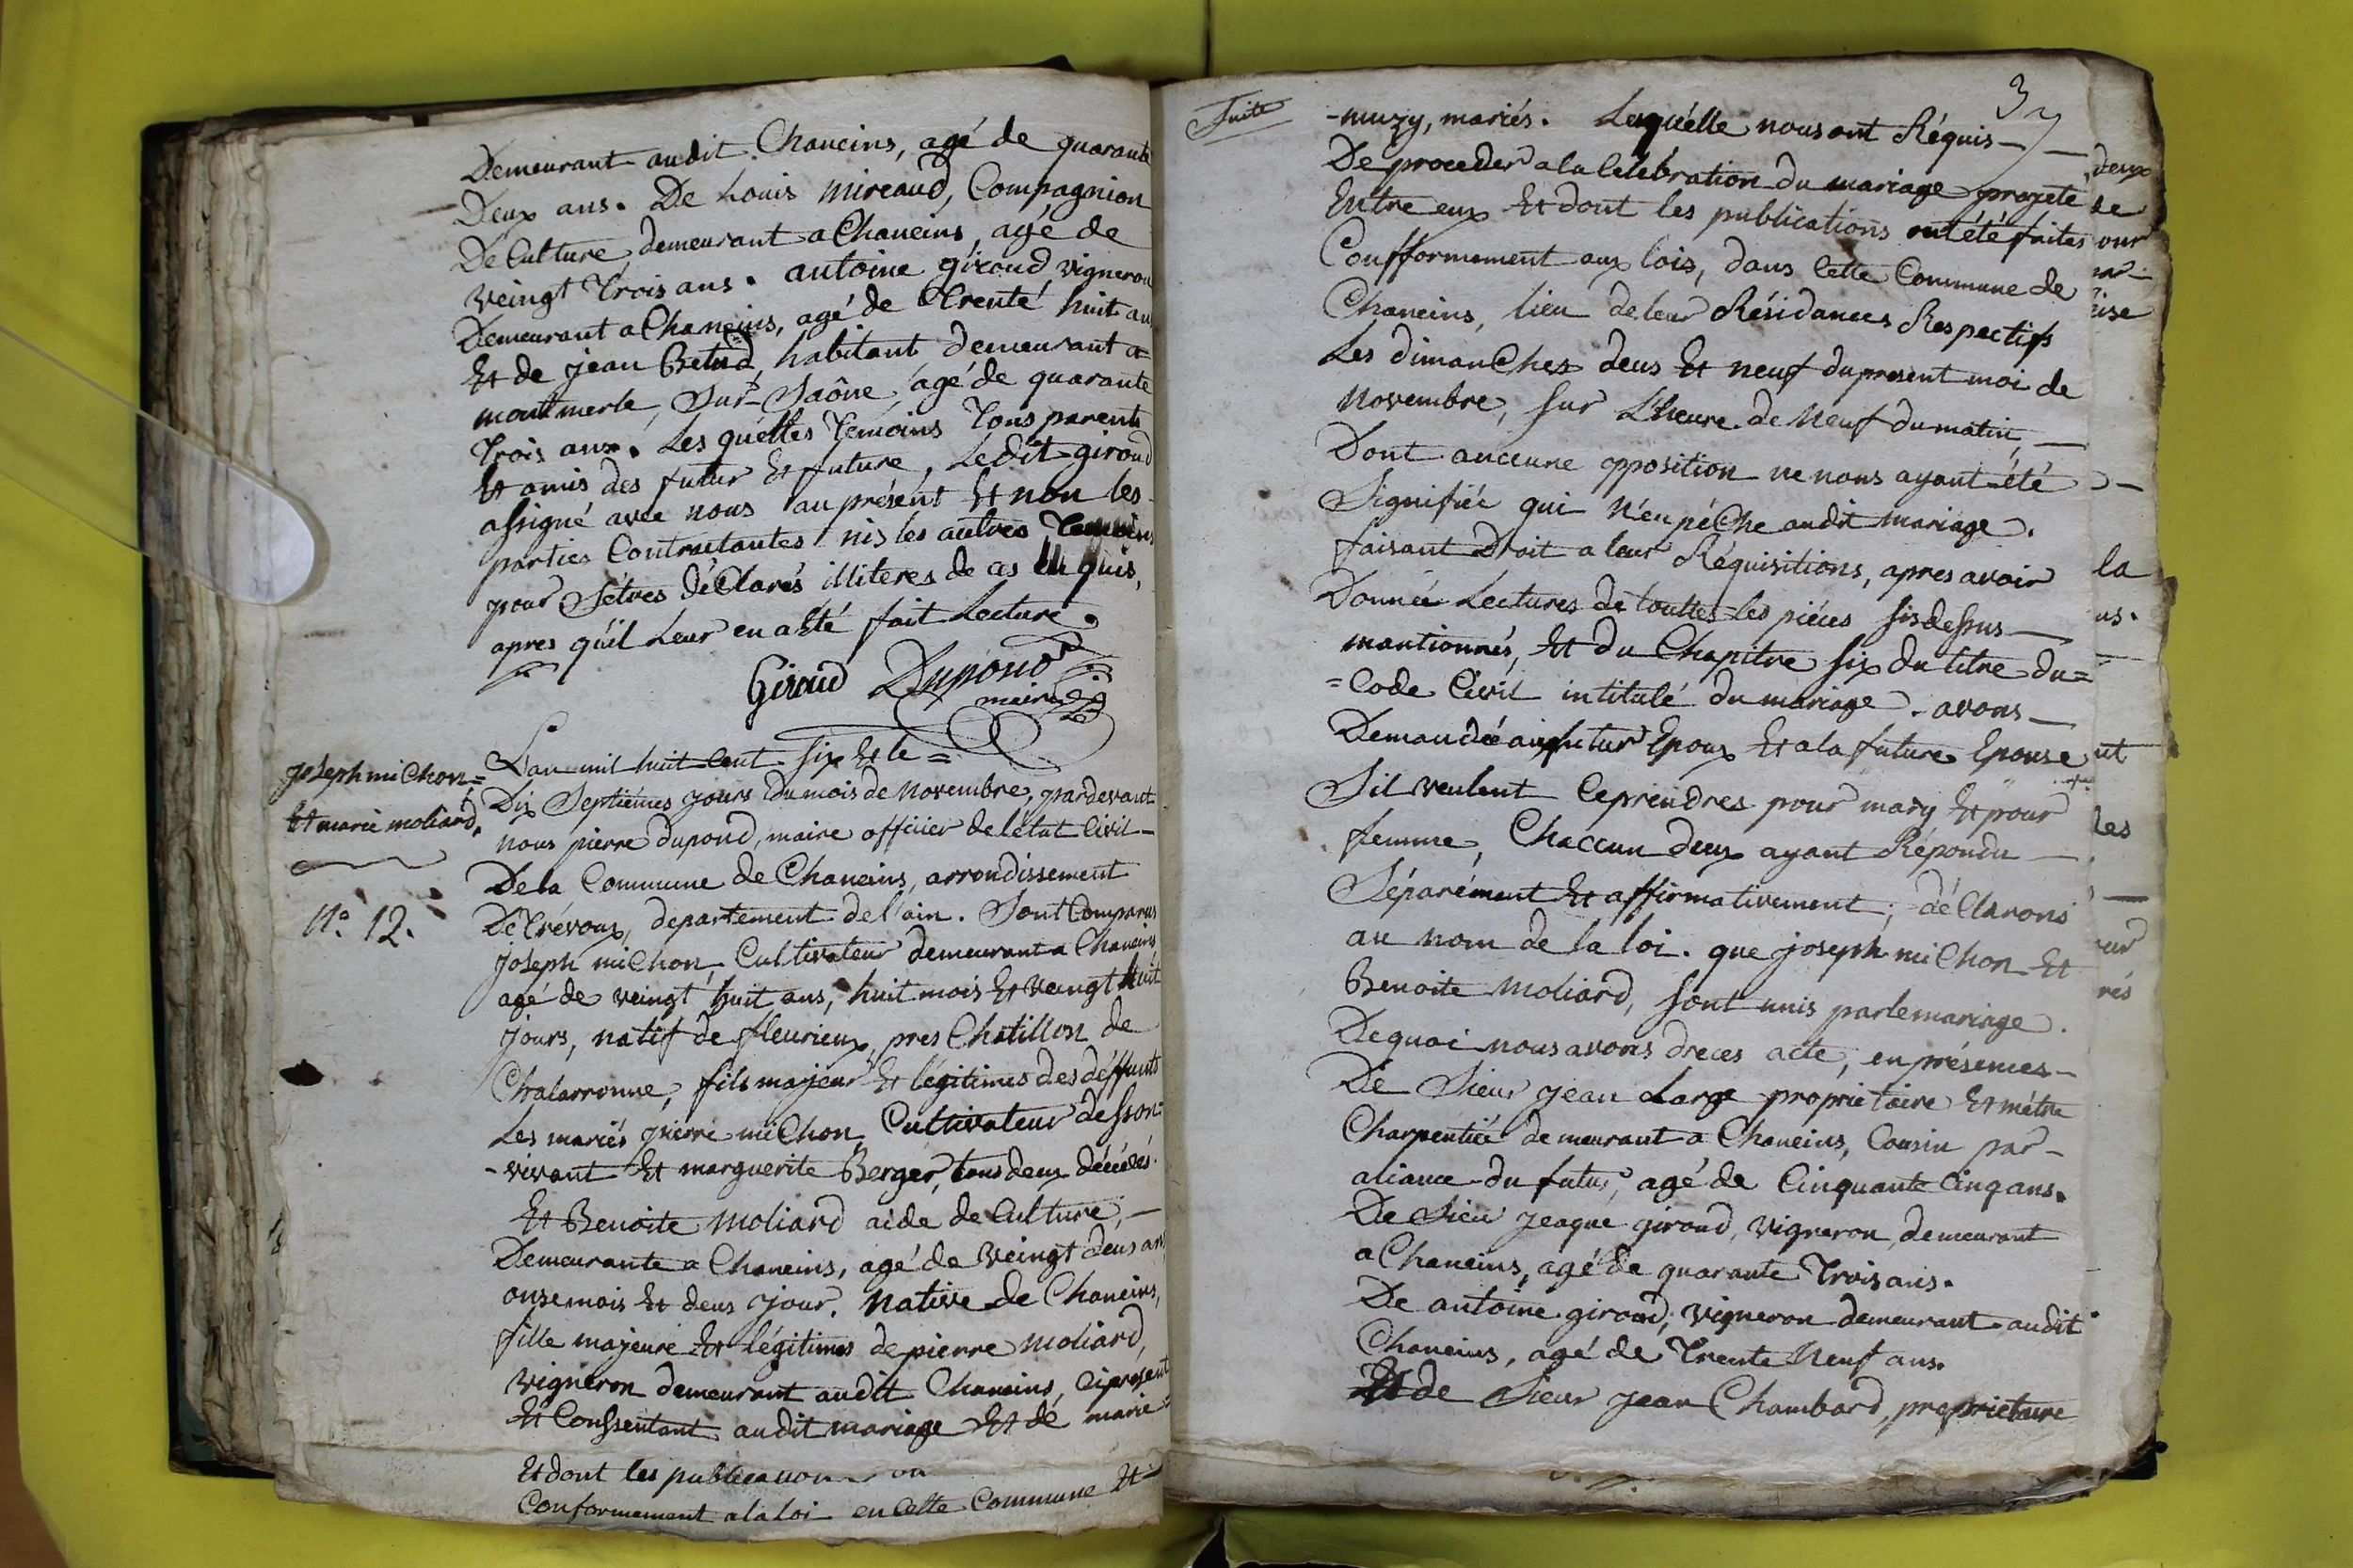 Demeurant audit Chaneins, agé de quarante
Deux ans. De Louis mireaud, Compagnion
De Culture demeurant a Chaneins, agé de
veingt Trois ans. antoine giroud vigneron
Demeurant a Chaneins, agé de Trente huit ans
Et de jean Betud, habitant demeurant a
montmerle, Sur-Saône, agé de quarante
Trois ans. Les quélles Témoins Tous parents
Et amis des futur Et future, Le dit giroud
assigné avec nous au présent Et non les
parties Contractantes nis les autres Témoins
pour Sétres déClarés illiteres de as en quis,
apres qu'il Leur en a Eté fait Lecture.
Giroud Dupond
maire
joseph miChon =
Et marie moliard,
N.° 12.
L'an mil huit Cent six Et le =
Dix Septiémes jours du mois de Novembre, pardevant
nous pierre dupond, maire officier de l'état Civil —
De la Commune de Chaneins, arrondissement
De Trévoux, departement de l'ain. Sont Comparus
joseph miChon, Cultivateur demeurant a Chaneins
agé de veingt huit ans, huit mois Et veingt huit
jours, natif de fleurieux, pres Chatillon de
Chalarronne, fils majeur Et légitimes des déffunts
Les mariés pierre miChon Cultivateur de sson =
- vivant Et marguerite Berger, tous deux décédés.
Et Benoite Moliard aide de Culture, —
Demeurante a Chaneins, agé de veingt deus ans
onse mois Et deus jour. Native de Chaneins,
fille majeure Et légitimes de pierre Moliard,
vigneron demeurant audit Chaneins, Ci present
Et Conssentant audit mariage Et de marie =
Et dont les publications on
Conformement a la loi en Cette Commune Et
Suite
37
- muzy, mariés. Lesquélle nous ont Réquis —
De proceder a la Célébration du mariage projeté
Entre eux Et dont les publications ont été faites
Confformement aux lois, dans Cette Commune de
Chaneins, lieu de leur Résidances Respectifs
Les dimanChes deus Et neuf du present moi de
Novembre, sur L'heure de Neuf du matin, —
Dont aucune opposition ne nous ayant été
Signifiée qui N'enpéChe audit mariage.
faisant Droit a leur Réquisitions, apres avoir
Donnée Lectures de touttes les piéces sis dessus —
mantionnés, Et du Chapitre six du titre du =
= Code Civil intitulé du mariage. avons —
Demandée au futur Epoux Et a la future Epouse
S'il veulent Ce prendres pour mary Et pour
femme, Chaccun deux ayant Répondu —
Séparément Et affirmativement; déClarons
au nom de la loi. que joseph miChon Et
Benoite Moliard, sont unis par le mariage.
De quoi nous avons dreces acte, en présences —
De Sieur jean Large proprietaire Et métre
Charpentiée demeurant a Chaneins, Cousin par —
aliance du futur, agé de Cinquante Cinq ans.
De Sieur jeaque giroud, vigneron, demeurant
a Chaneins, agé de quarante Trois ans.
De antoine giroud, vigneron demeurant audit
Chaneins, agé de Trente Neuf ans.
Et de Sieur jean Chambard, proprietaire
deux
se
our
ise
la
us.
nt
les
ur
rés